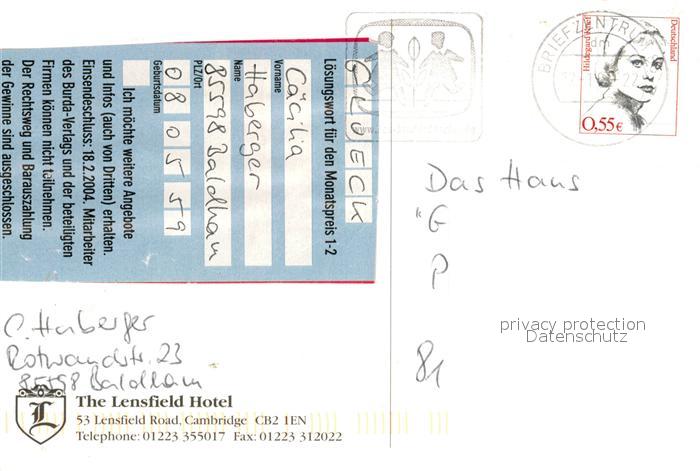 Lösungswort für den Monatspreis 1-2
GLUECK
Vorname
Cäcilia
Name
Haberger
PLZ/Ort
85598 Baldham
Geburtsdatum
080559
Ich möchte weitere Angebote
und Infos (auch von Dritten) erhalten.
Einsendeschluss: 18.2.2004, Mitarbeiter
des Burda-Verlags und der beteiligten
Firmen können nicht teilnehmen.
Der Rechtsweg und Barauszahlung
der Gewinne sind ausgeschlossen.
C. Haberger
Rotwandstr. 23
85598 Baldham
L
The Lensfield Hotel
53 Lensfield Road, Cambridge CB2 1EN
Telephone: 01223 355017 Fax: 01223 312022
BRIEFZENTRUM
Deutschland
Hildegard Knef
0,55€
Das Haus
"G
P
81
privacy protection
Datenschutz